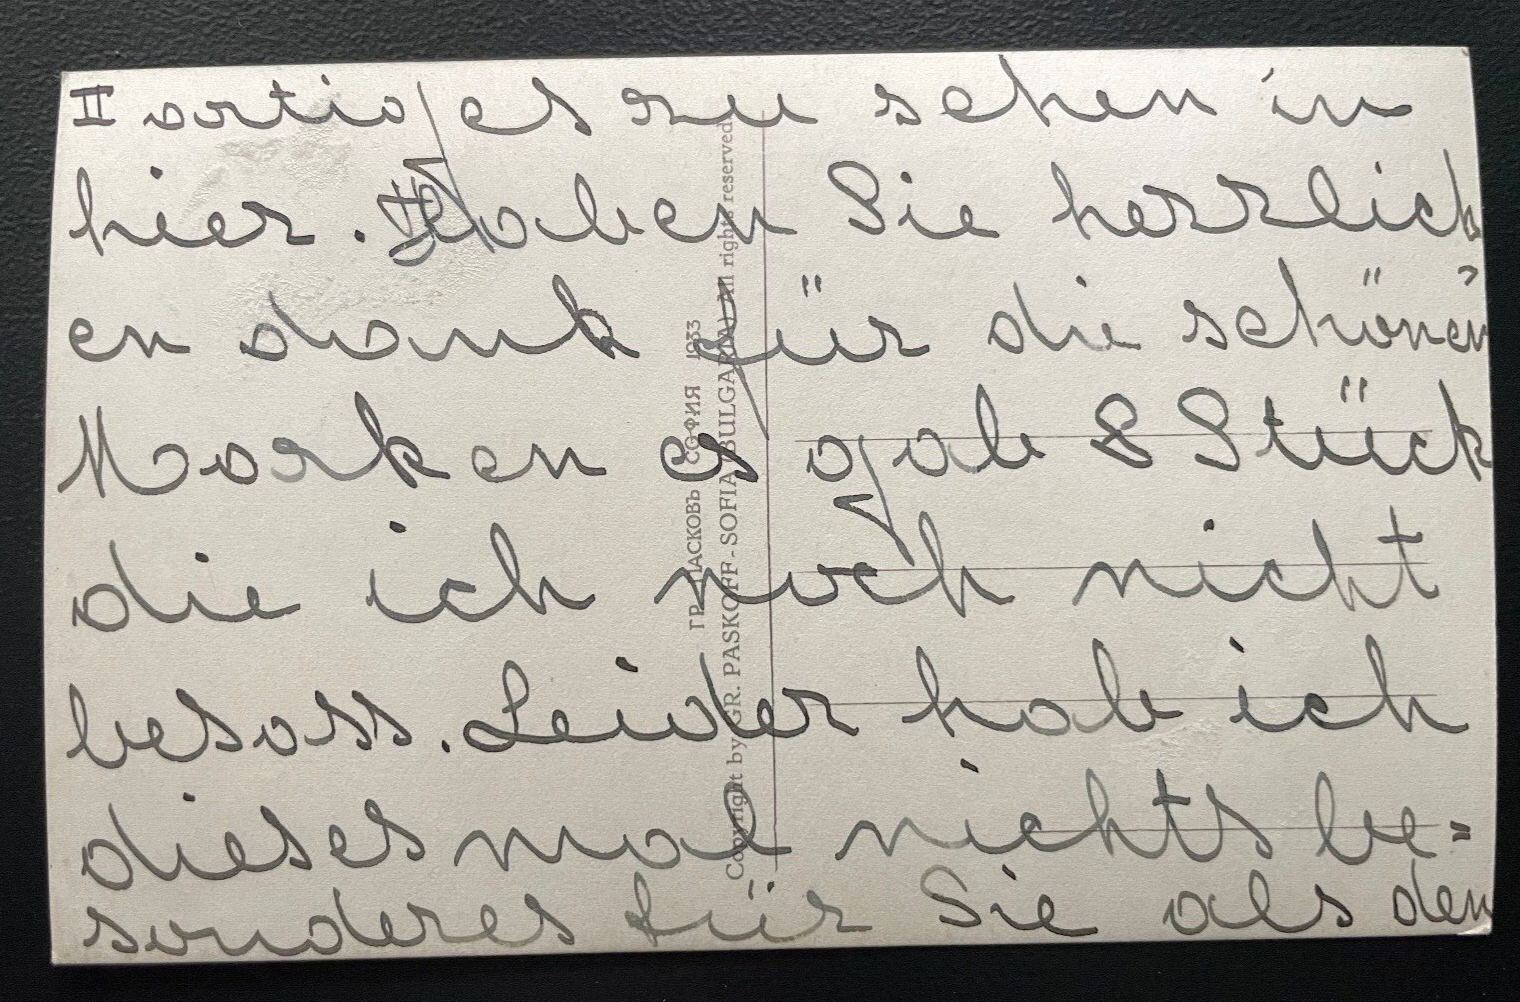 II artiges zu sehen in
hier. Haben Sie herrlich
en dank für die schönen
Marken es gab 8 Stück
die ich noch nicht
besass. Leider hab ich
diesesmal nichts be=
sonderes für Sie als den
ГР. ПАСКОВЪ СОФИЯ 1933
Copyright by GR. PASKOFF - SOFIA (BULGARIA) All rights reserved